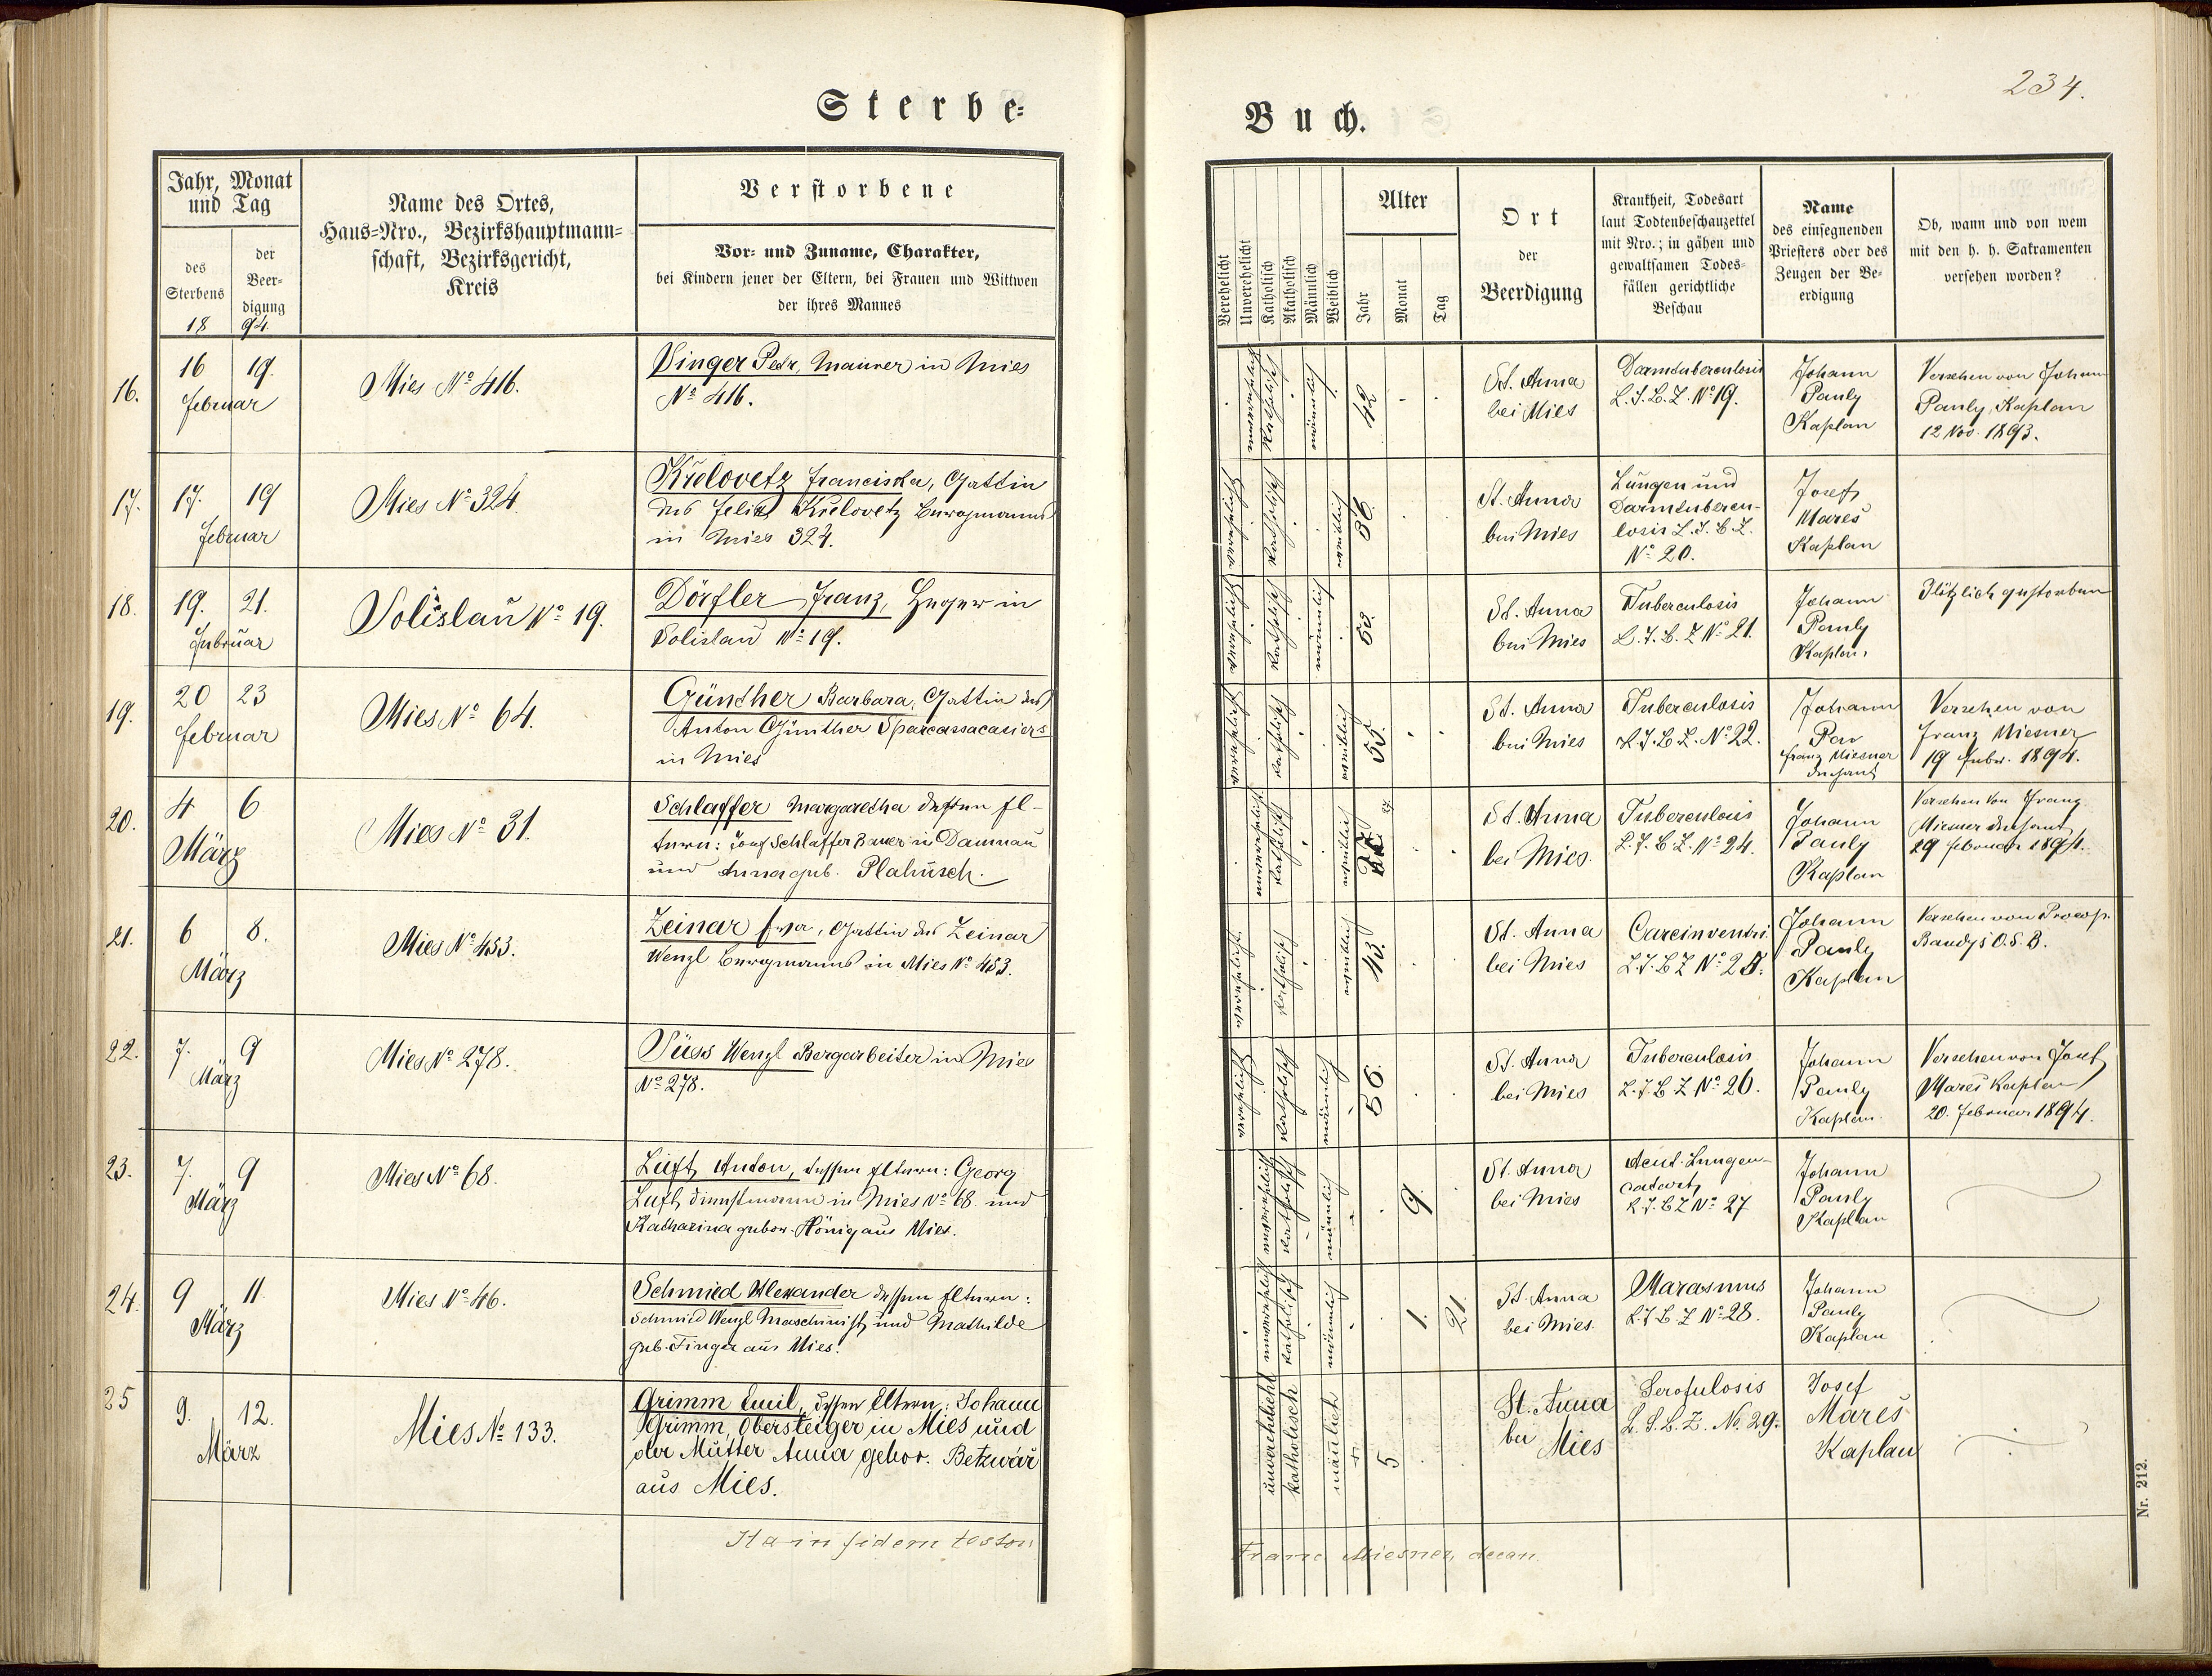 Sterbe=
Jahr, Monat
und Tag
des
Sterbens
18
der
Beer-
digung
94.
Name des Ortes,
Haus=Nro., Bezirkshauptmann=
schaft, Bezirksgericht,
Kreis
Verstorbene
Vor= und Zuname, Charakter,
bei Kindern jener der Eltern, bei Frauen und Wittwen
der ihres Mannes
16.
16 19.
Februar
Mies No 416.
Singer Petr, Maurer in Mies
No 416.
17.
17. 19
Februar
Mies No 324.
Křelovetz Franciska, Gattin
des Felix Křelovetz Bergmanns
in Mies 324.
18.
19. 21.
Februar
Solislau No 19.
Dörfler Franz, Heger in
Solislau No 19.
19.
20 23
Februar
Mies No 64.
Günther Barbara, Gattin des
Anton Günther Sparcassacasiers
in Mies
20.
4 6
März
Mies No 31.
Schlaffer Margaretha dessen El-
tern: Josef Schlaffer Bauer in Damnau
und Anna geb. Plahusch.
21.
6 8.
März
Mies No 453.
Zeinar Eva, Gattin des Zeinar
Wenzl Bergmanns in Mies No 453.
22.
7. 9
März
Mies No 278.
Süss Wenzl Bergarbeiter in Mies
No 278.
23.
7. 9
März
Mies No 68.
Luft Anton, dessen Eltern: Georg
Luft, Dienstmann in Mies No 68 und
Katharina gebor. Hönig aus Mies.
24.
9 11
März
Mies No 46.
Schmied Alexander dessen Eltern:
Schmied Wenzl Maschinist und Mathilde
geb. Finger aus Mies.
25
9. 12.
März
Mies No 133.
Grimm Emil, dessen Eltern: Johann
Grimm, Obersteiger in Mies und
der Mutter Anna gebor. Betzwář
aus Mies.
Ita in fidem testor
234.
Buch.
Verehelicht
Unverehelicht
Katholisch
Akatholisch
Männlich
Weiblich
Alter
Jahr
Monat
Tag
Ort
der
Beerdigung
Krankheit, Todesart
laut Todtenbeschauzettel
mit Nro.; in gähen und
gewaltsamen Todes=
fällen gerichtliche
Beschau
Name
des einsegnenden
Priesters oder des
Zeugen der Be=
erdigung
Ob, wann und von wem
mit den h. h. Sakramenten
versehen worden?
unverehelicht
katholisch
männlich
42
St. Anna
bei Mies
Darmtuberculosis
L.T.B.Z. No 19.
Johann
Pauly
Kaplan
Versehen von Johann
Pauly, Kaplan
12 Nov. 1893.
verehelicht
katholisch
weiblich
36.
St. Anna
bei Mies
Lungen und
Darmtubercu-
losis L.T.B.Z.
No 20.
Josef
Mareš
Kaplan
verehelicht
katholisch
männlich
53.
St. Anna
bei Mies
Tuberculosis
L.T.B.Z No 21.
Johann
Pauly
Kaplan.
Plötzlich gestorben
verehelicht
katholisch
weiblich
55.
St. Anna
bei Mies
Tuberculosis
L.T.B.Z. No 22.
Johann
Franz Miesner
Dechant
Versehen von
Franz Miesner
19 Febr. 1894.
unverehelicht
katholisch
weiblich
St. Anna
bei Mies.
Tuberculosis
L.T.B.Z. No 24.
Johann
Pauly
Kaplan
Versehen von Franz
Miesner Dechant
29 Februar 1894.
verehelicht
katholisch
weiblich
43.
St. Anna
bei Mies
Carcinventri.
L.T.B.Z No 25.
Johann
Pauly
Kaplan
Versehen von Procop.
Bandyš O.S.B.
verehelicht
katholisch
männlich
56.
St. Anna
bei Mies
Tuberculosis
L.T.B.Z No 26.
Johann
Pauly
Kaplan
Versehen von Josef
Mareš Kaplan
20. Februar 1894.
unverehelicht
katholisch
männlich
9.
St. Anna
bei Mies
Acut. Lungen-
catarh
L.T.B.Z No 27
Johann
Pauly
Kaplan
unverehelicht
katholisch
männlich
1. 21.
St. Anna
bei Mies.
Marasmus
L.T.B.Z No 28.
Johann
Pauly
Kaplan
unverehelicht
katholisch
mänlich
5
St. Anna
bei Mies
Scrofulosis
L.T.B.Z. No. 29.
Josef
Mareš
Kaplan
Franc Miesner, decan.
Nr. 212.